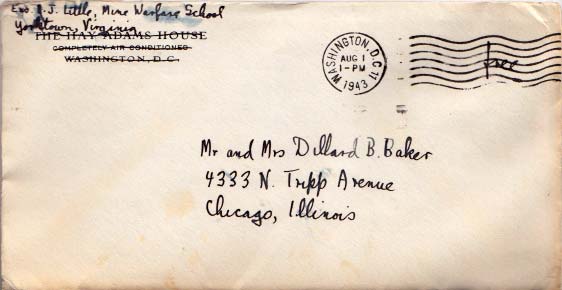 Ens. J.J. Little, Mine Warfare School
Yorktown, Virginia
THE HAY-ADAMS HOUSE
COMPLETELY AIR CONDITIONED
WASHINGTON, D.C.
WASHINGTON, D.C. 11
AUG 1
1-PM
1943
free
Mr and Mrs Dillard B. Baker
4333 N. Tripp Avenue
Chicago, Illinois